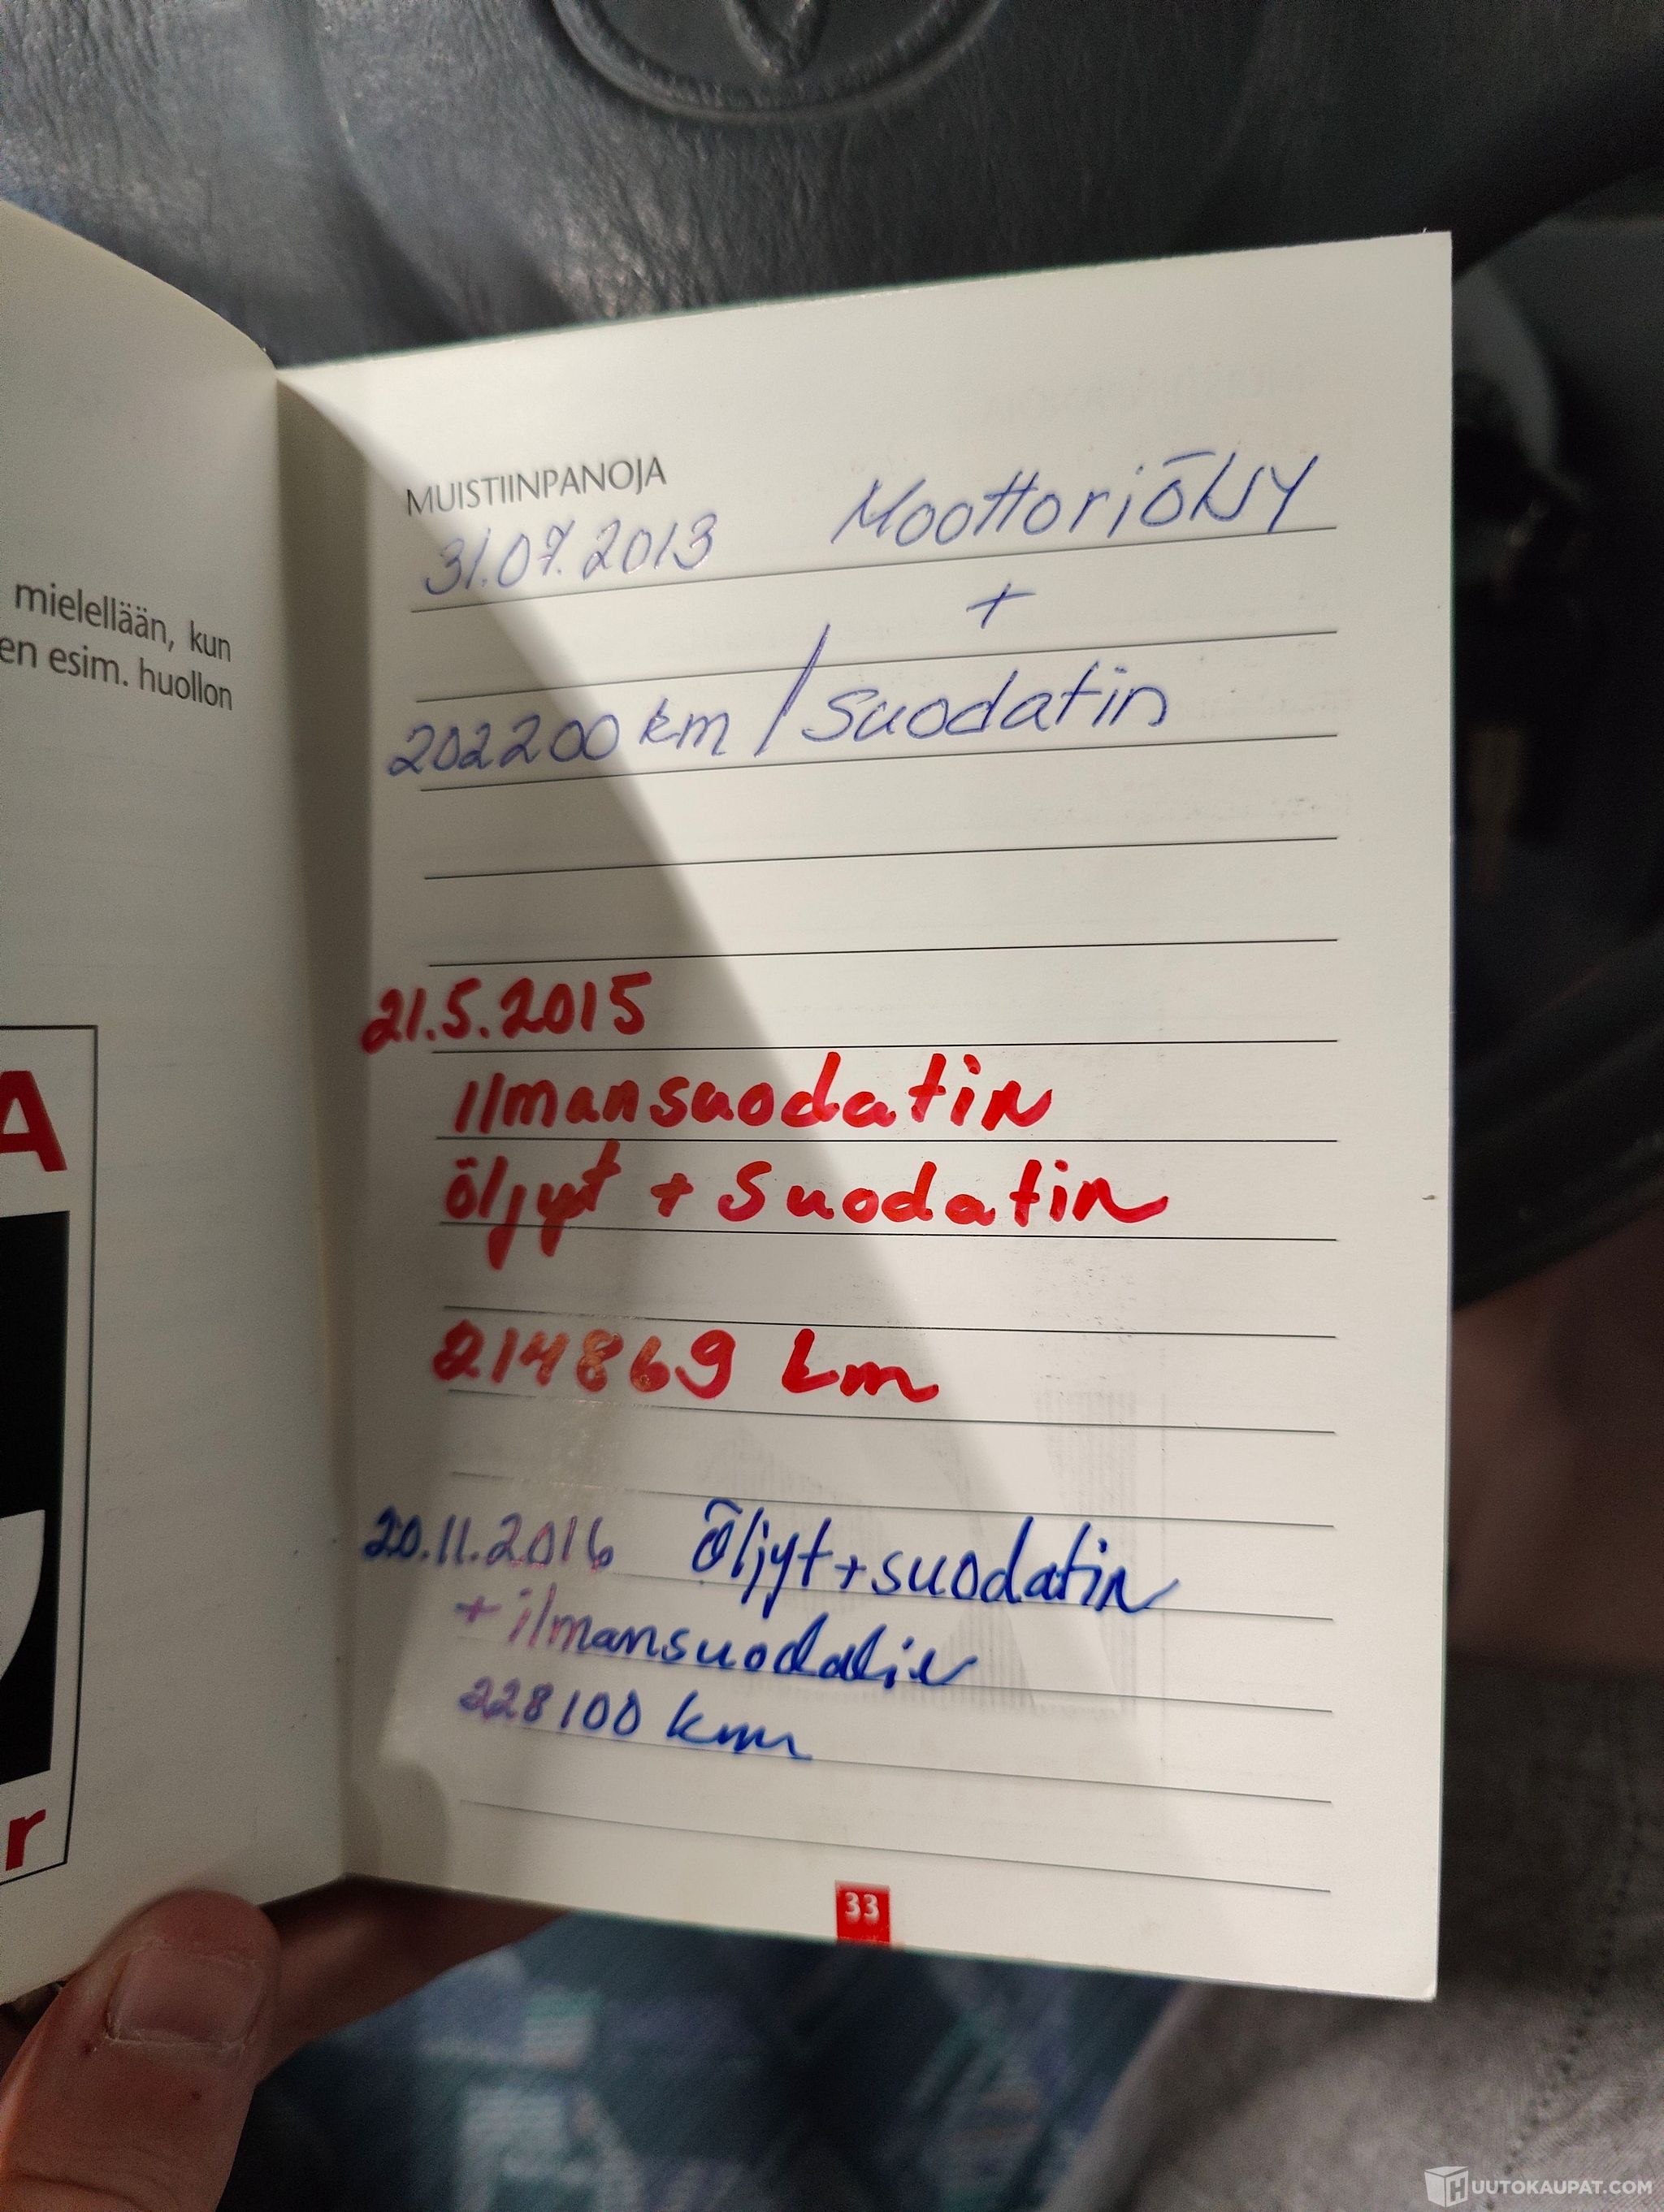 mielellään, kun
en esim. huollon
A
r
MUISTIINPANOJA
31.07.2013 Moottoriöljy
+
202200 km / suodatin
21.5.2015
Ilmansuodatin
öljyt + suodatin
214869 km
20.11.2016 Öljyt + suodatin
+ ilmansuodatin
228100 km
33
HUUTOKAUPAT.COM